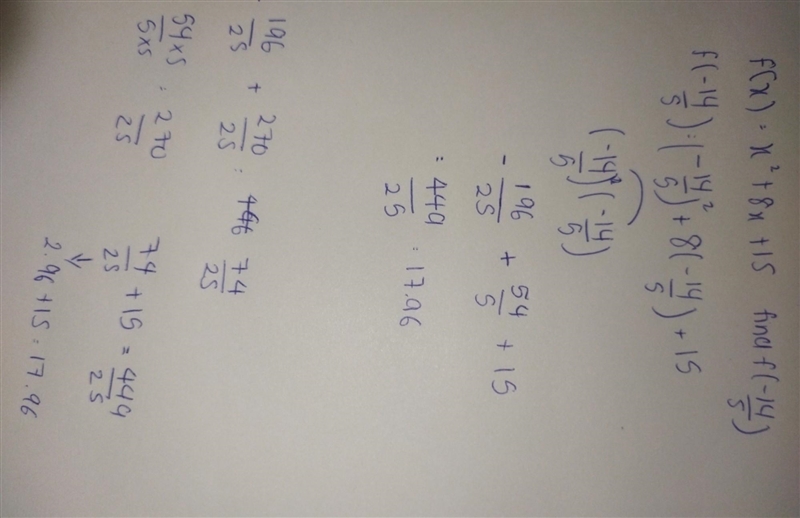 f(x) = x² + 8x + 15 find f(-14/5)
f(-14/5) = (-14/5)² + 8(-14/5) + 15
(-14/5)(-14/5)
- 196/25 + 54/5 + 15
= 449/25 = 17.96
196/25 + 270/25 = 74/25
54x5/5x5 = 270/25
74/25 + 15 = 449/25
↓
2.96 + 15 = 17.96